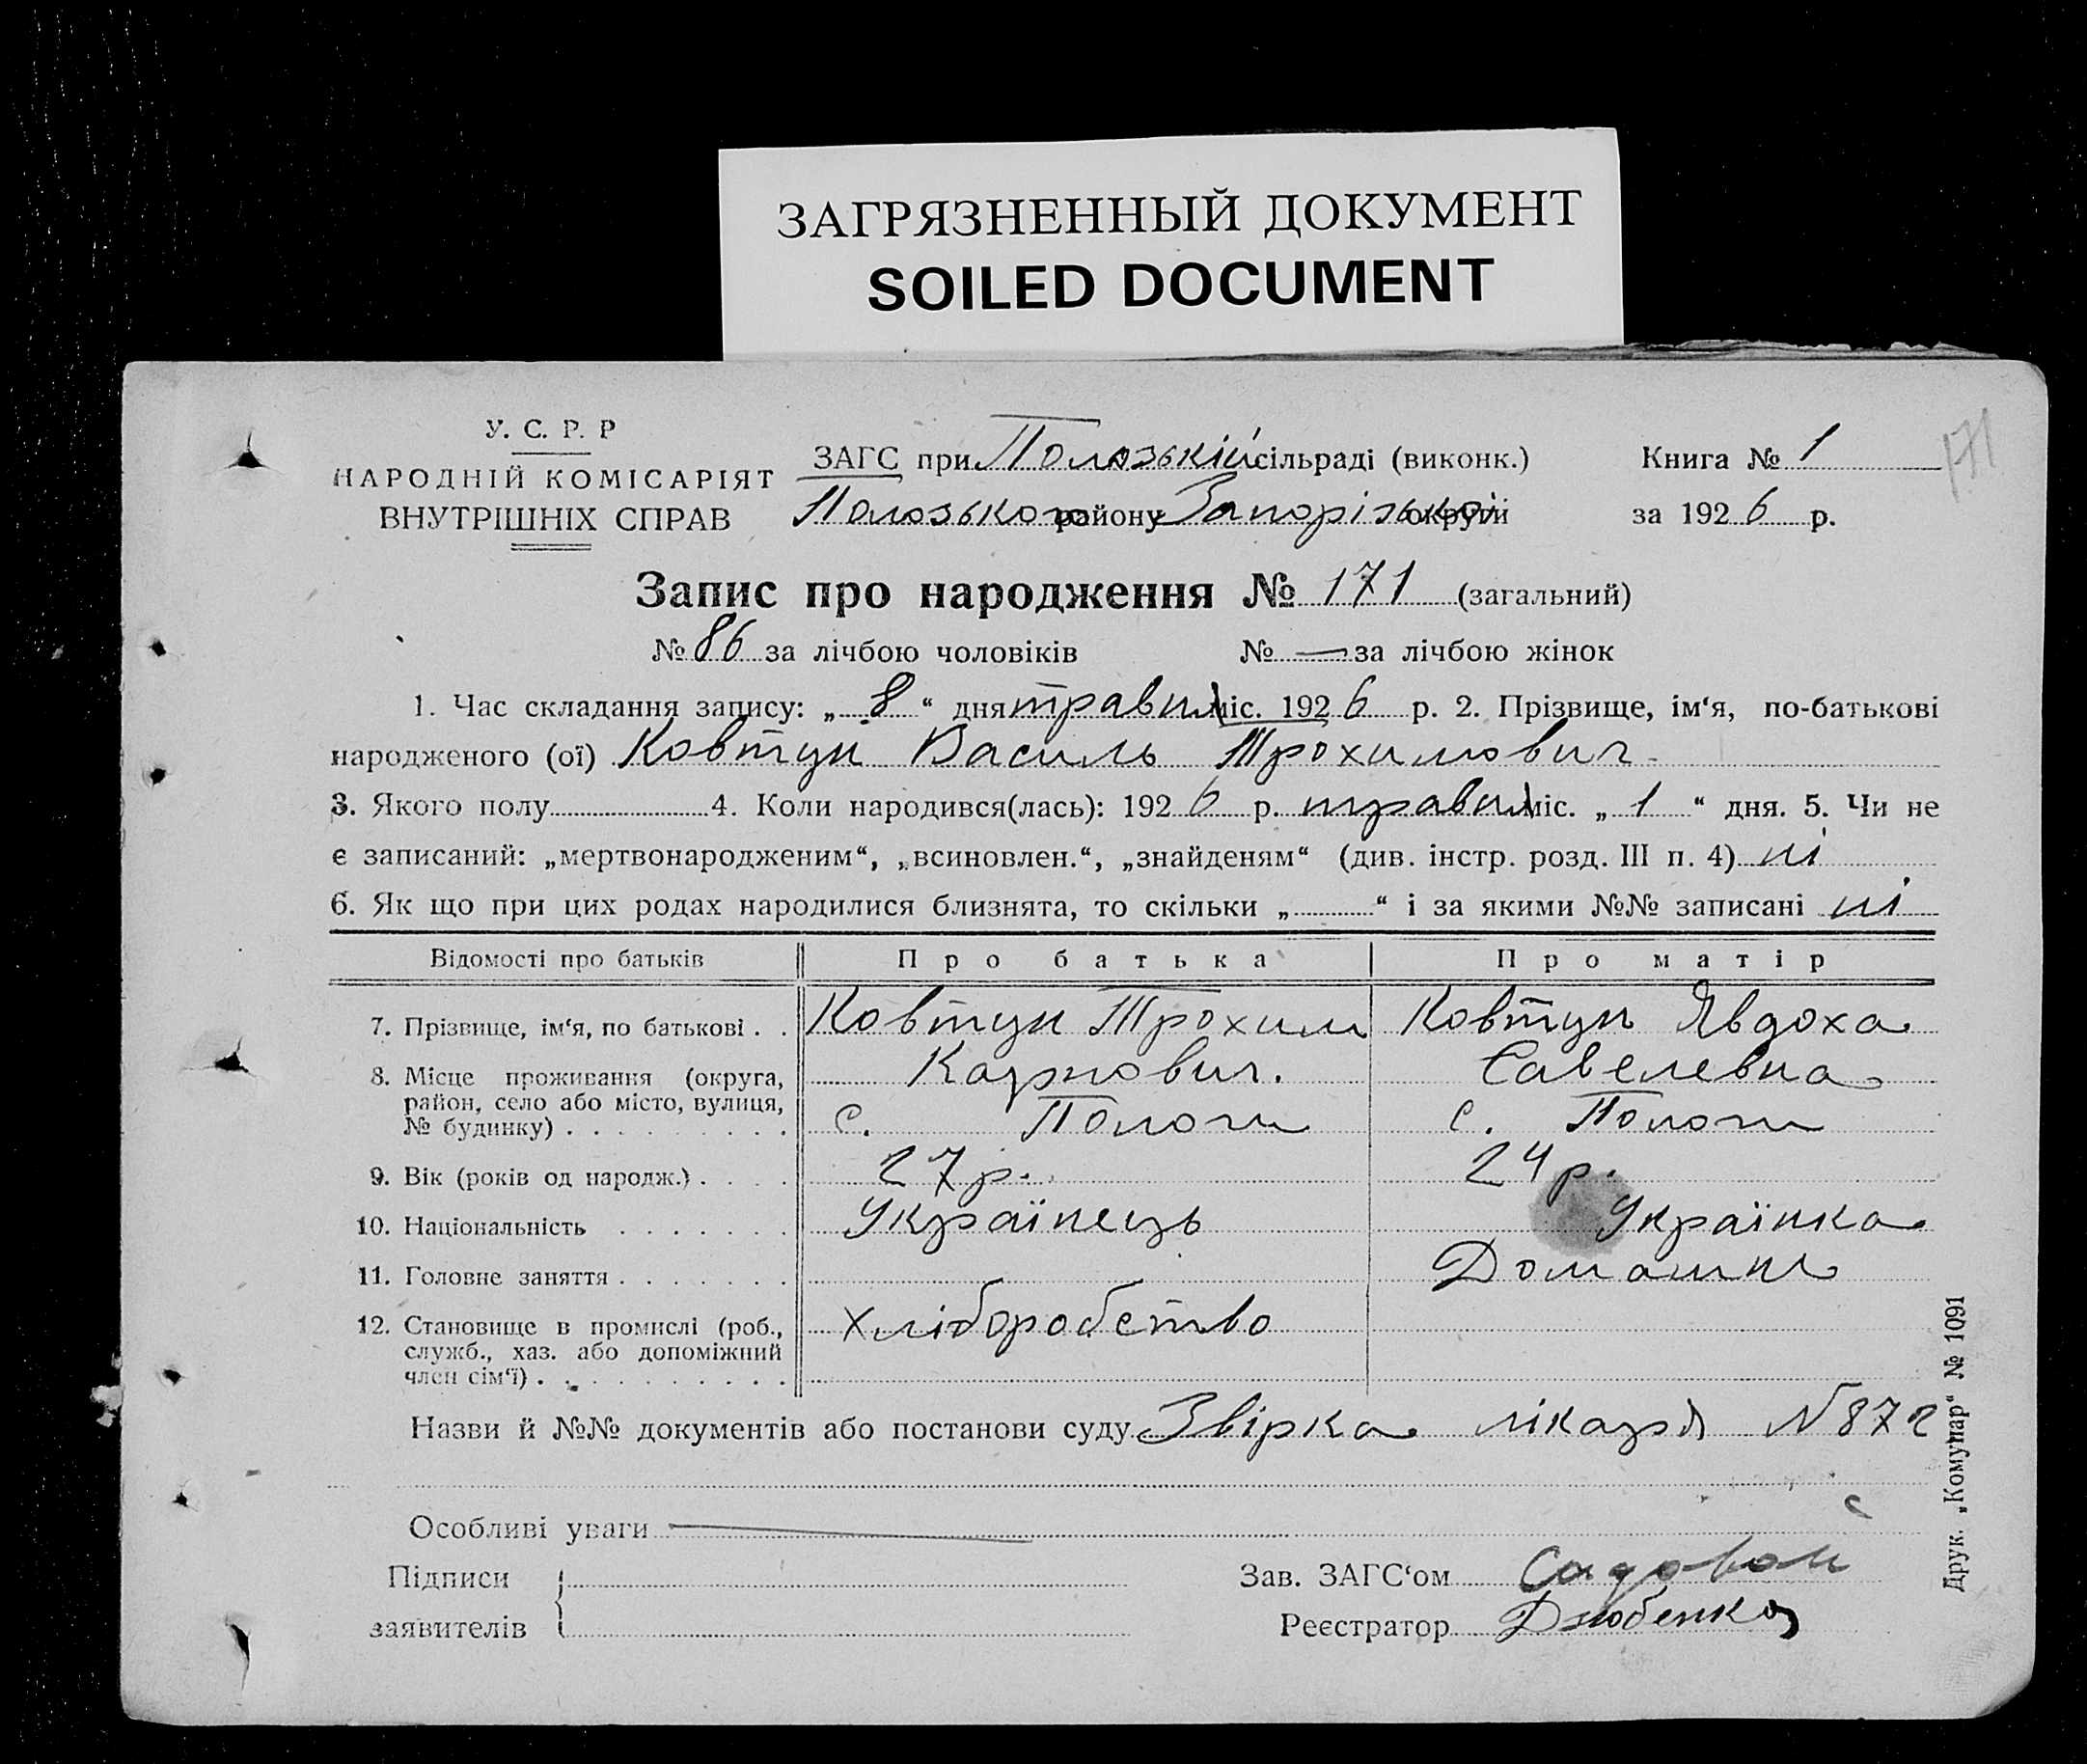 ЗАГРЯЗНЕННЫЙ ДОКУМЕНТ
SOILED DOCUMENT
171
У. С. Р. Р
НАРОДНІЙ КОМІСАРІЯТ
ВНУТРІШНІХ СПРАВ
ЗАГС при Полозькій сільраді (виконк.)
Полозького району Запорізької округи
Книга № 1
за 1926 р.
Запис про народження № 171 (загальний)
№ 86 за лічбою чоловіків № — за лічбою жінок
1. Час складання запису: „ 8 “ дня травня міс. 1926 р. 2. Прізвище, ім‘я, по-батькові
народженого (ої) Ковтун Василь Трохимович
3. Якого полу 4. Коли народився(лась): 1926 р. травня міс. „ 1 “ дня. 5. Чи не
є записаний: „мертвонародженим“, „всиновлен.“, „знайденям“ (див. інстр. розд. III п. 4) ні
6. Як що при цих родах народилися близнята, то скільки „ “ і за якими №№ записані ні
Відомості про батьків Про батька Про матір
7. Прізвище, ім‘я, по батькові . . Ковтун Трохим Ковтун Явдоха
Карпович. Савелевна
8. Місце проживання (округа,
район, село або місто, вулиця,
№ будинку) . . . . . . . . . с. Пологи с. Пологи
9. Вік (років од народж.) . . . . 27 р. 24 р.
10. Національність . . . . . . . Українець Українка
11. Головне заняття . . . . . . . Домашнє
12. Становище в промислі (роб.,
служб., хаз. або допоміжний
член сім‘ї) . . . . . . . . . . хліборобство
Назви й №№ документів або постанови суду Звірка лікаря N 872
Особливі уваги
Підписи
заявителів
Зав. ЗАГС‘ом Садовой
Реєстратор Дзюбенко
Друк. „Комунар“ № 1091